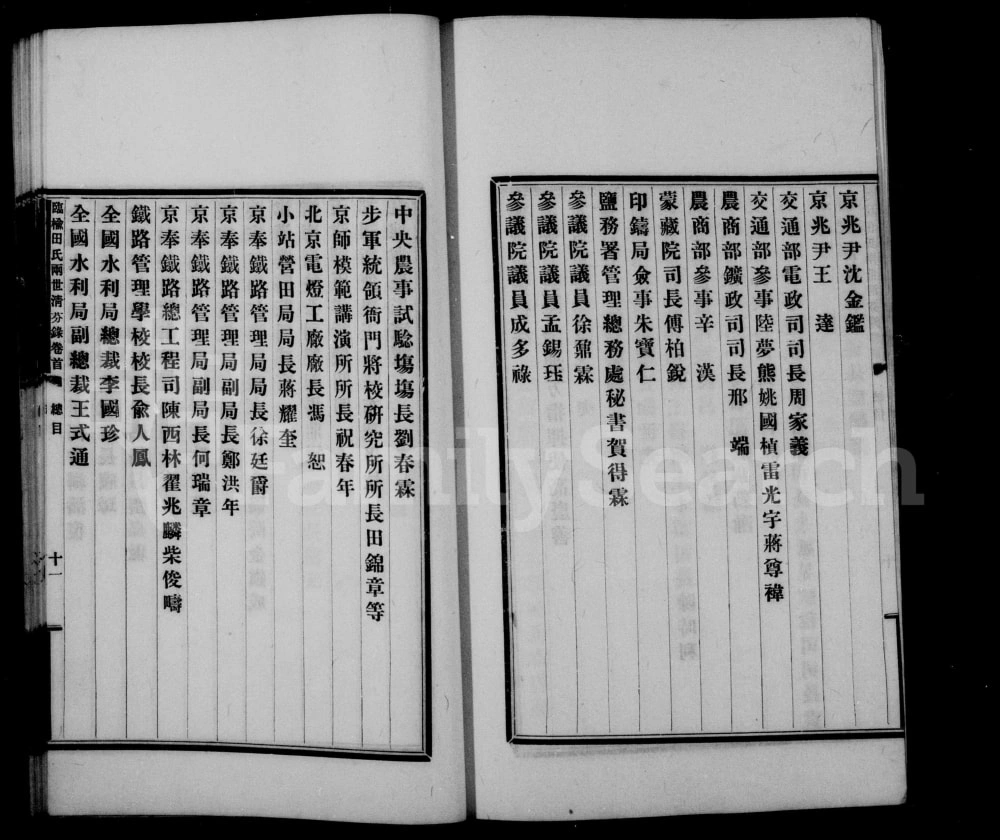 京兆尹沈金鑑
京兆尹王　達
交通部電政司司長周家義
交通部參事陸夢熊姚國楨雷光宇蔣尊禕
農商部鑛政司司長邢　端
農商部參事辛　漢
蒙藏院司長傅柏銳
印鑄局僉事朱寶仁
鹽務署管理總務處秘書賀得霖
參議院議員徐鼐霖
參議院議員孟錫珏
參議院議員成多祿
中央農事試驗場場長劉春霖
步軍統領衙門將校研究所所長田錦章等
京師模範講演所所長祝春年
北京電燈工廠廠長馮　恕
小站營田局局長蔣耀奎
京奉鐵路管理局局長徐廷爵
京奉鐵路管理局副局長鄭洪年
京奉鐵路管理局副局長何瑞章
京奉鐵路總工程司陳西林翟兆麟柴俊疇
鐵路管理學校校長俞人鳳
全國水利局總裁李國珍
全國水利局副總裁王式通
臨榆田氏兩世清芬錄卷首　總目　十一
FamilySearch